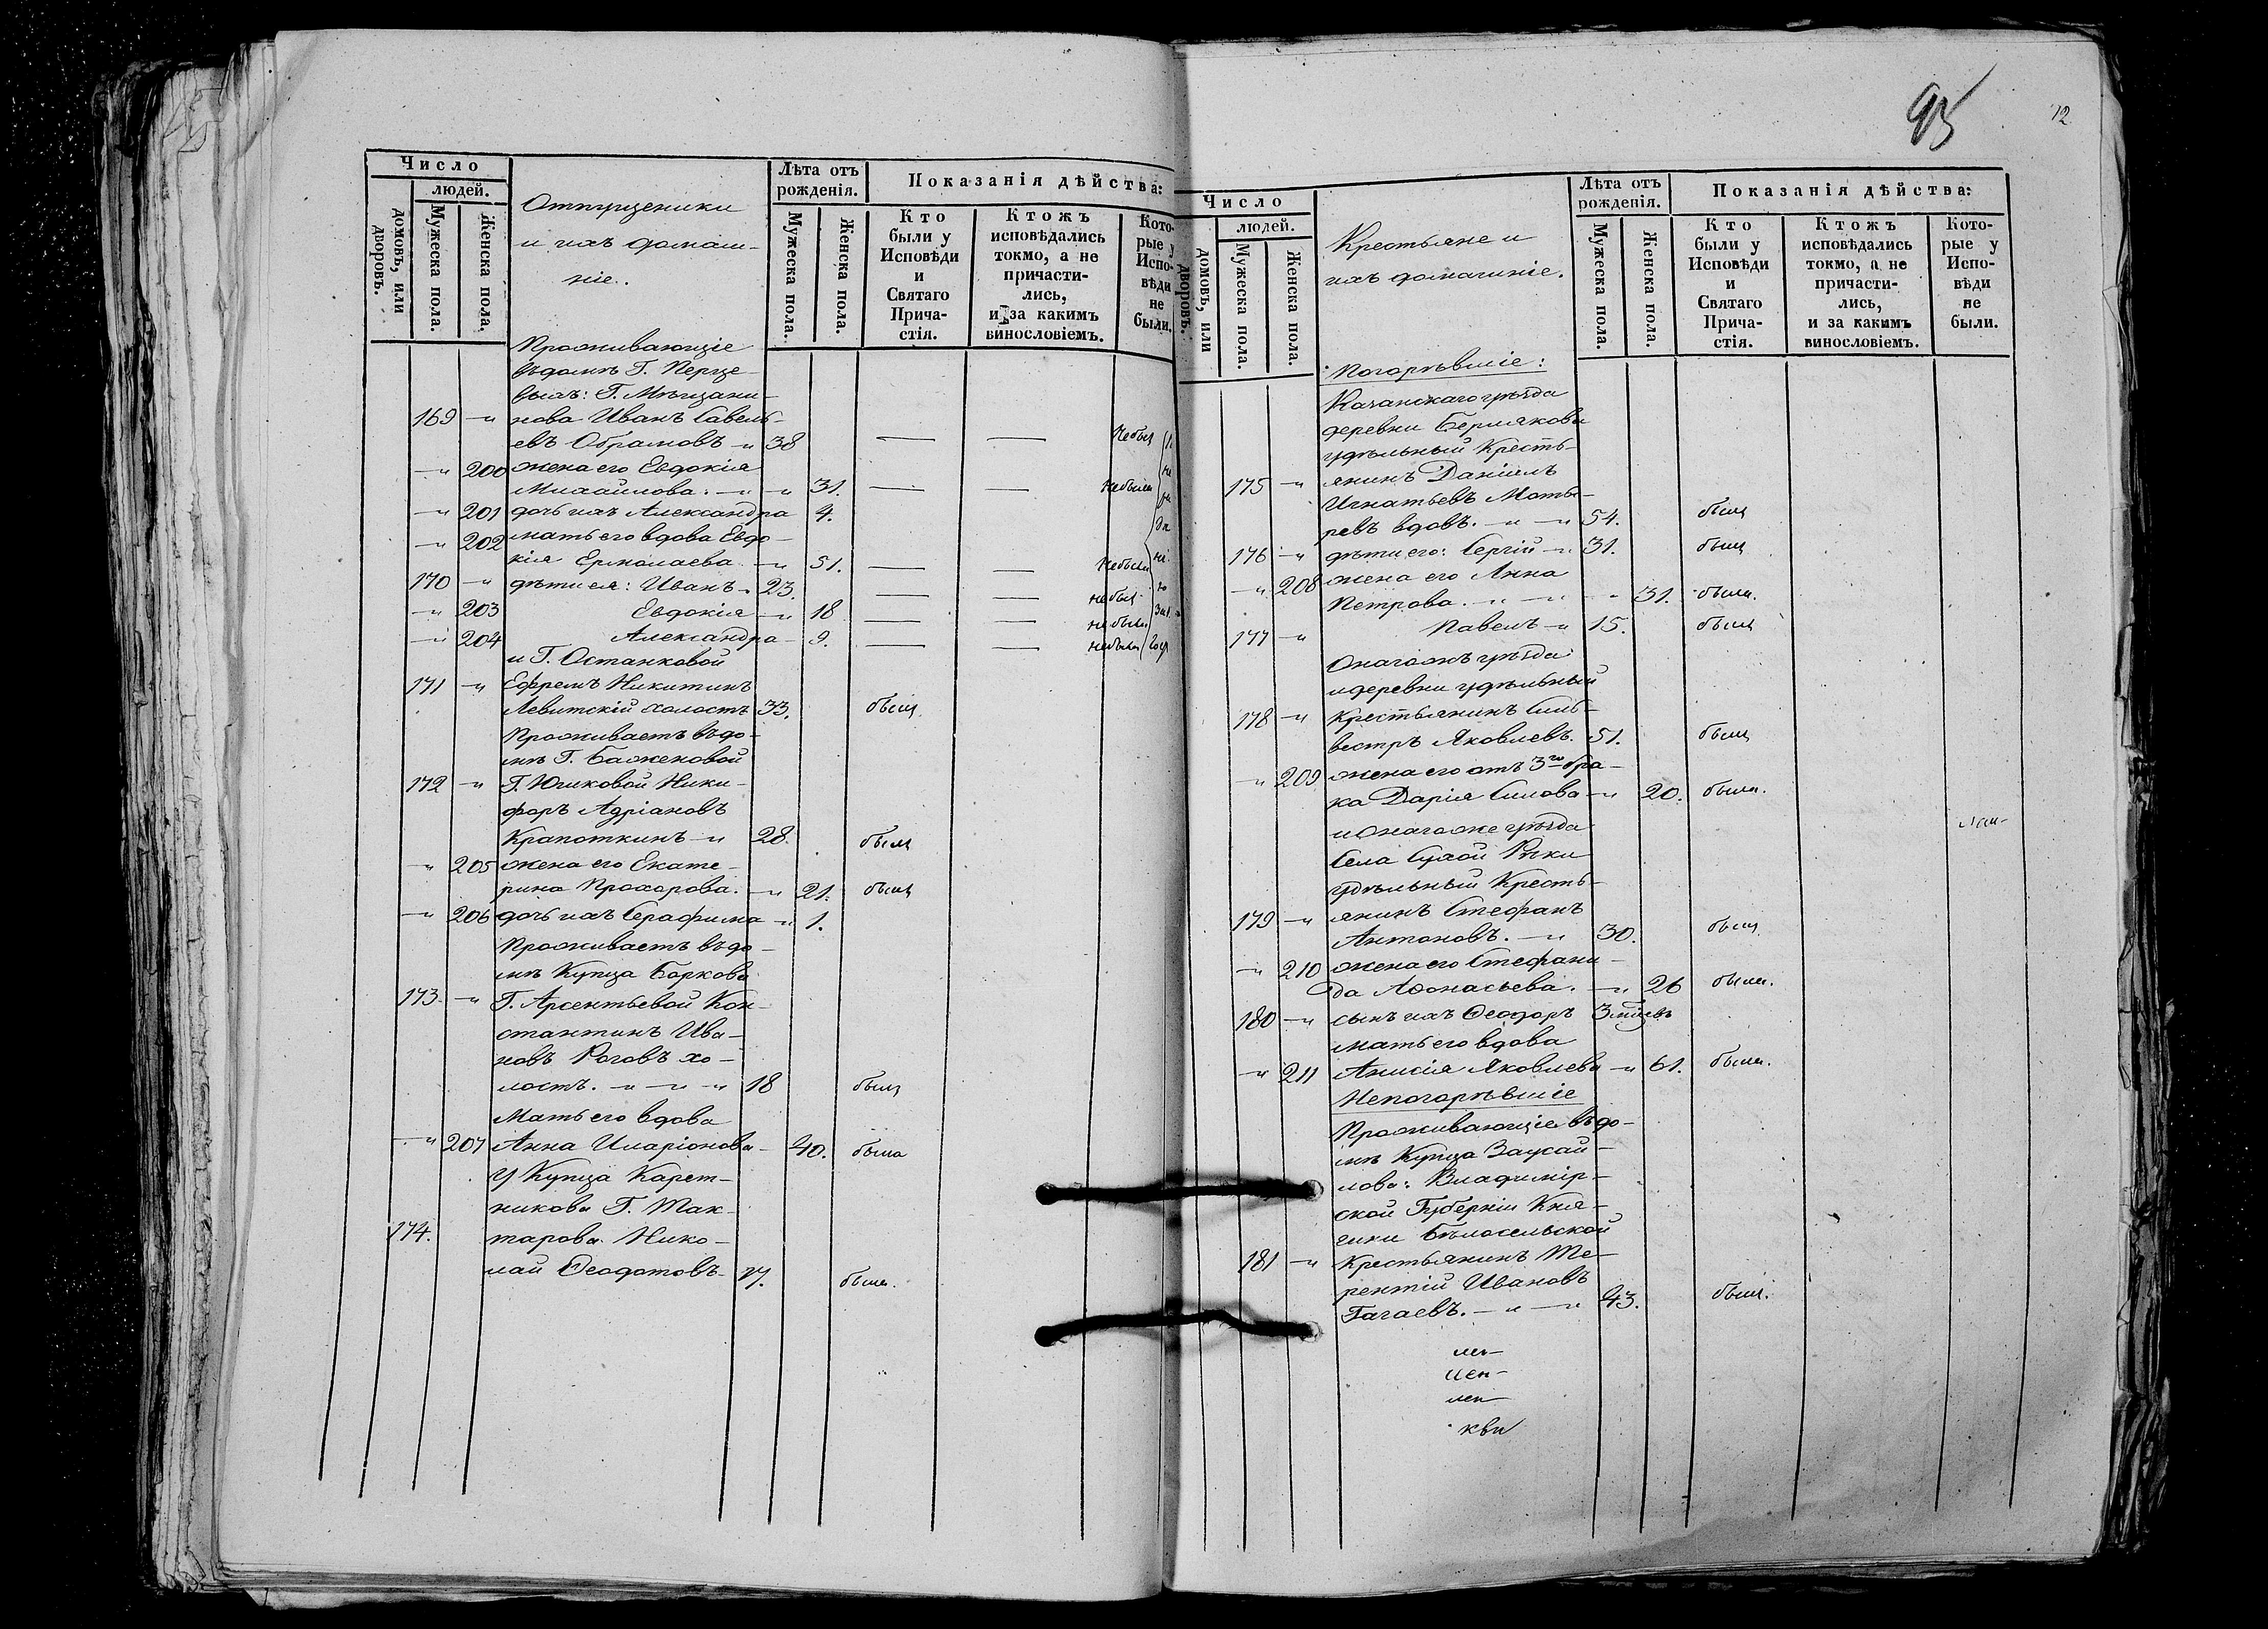 Число
людей.
домовъ, или дворовъ.
Мужеска пола.
Женска пола.
Отпущеники
и ихъ домаш-
ніе.
Лѣта отъ рожденія.
Мужеска пола.
Женска пола.
Показанія дѣйства:
Кто были у Исповѣди и Святаго Причастія.
Ктожъ исповѣдались токмо, а не причасти-лись, и за какимъ винословіемъ.
Кото-рые у Испо-вѣди не были.
Проживающіе
въ домѣ Г.
выхъ: Г. Мѣщани-
169 -„ нова Иванъ Савель-
евъ Обрамовъ -„ 38 — — Небылъ
-„ 200 жена его Евдокія
Михайлова. -„ -„ 31. — — Небыла
-„ 201 дочь ихъ Александра 4.
-„ 202 мать его вдова Евдо-
кія Ермолаева -„ 51. — — Небыла
170 -„ дѣти ея: Иванъ -„ 23. — — небылъ
-„ 203 Евдокія -„ 18 — — небыла
-„ 204 Александра - 9. — — небыла
и Г. Останковой
171 -„ Ефремъ Никитинъ
Левитскій холостъ 33. былъ
Проживаетъ въ до-
мѣ Г. Баженовой
172 -„ Г. Юшковой Ники-
форъ Адріановъ
Крапоткинъ -„ 28. былъ
-„ 205 жена его Екате-
рина Прохорова. -„ 21. была
-„ 206 дочь ихъ Серафима -„ 1.
Проживаетъ въ до-
мѣ Купца Боркова
173. -„ Г. Арсентьевой Кон-
стантинъ Ива-
новъ Роговъ хо-
лостъ. -„ -„ -„ 18 былъ
Мать его вдова
-„ 207 Анна Иларіонова - 40. была
У Купца Карет-
никова Г. Так-
174. тарова Нико-
лай Ѳеодотовъ - 17. былъ.
95
12
Число
людей.
домовъ, или дворовъ.
Мужеска пола.
Женска пола.
Крестьяне и
ихъ домашніе.
Лѣта отъ рожденія.
Мужеска пола.
Женска пола.
Показанія дѣйства:
Кто были у Исповѣди и Святаго Прича-стія.
Ктожъ исповѣдались токмо, а не причасти-лись, и за какимъ винословіемъ.
Кото-рые у Испо-вѣди не были.
Погорѣвшіе:
Казанскаго уѣзда
деревни
удѣльный Кресть-
175 -„ янинъ Даніилъ
Игнатьевъ
ревъ вдовъ. -„ -„ 54. былъ
176 -„ дѣти его: Сергій -„ 31. былъ
-„ 208 жена его Анна
Петрова. -„ -„ -„ 31. была.
177 -„ Павелъ -„ 15. былъ
Онагожъ уѣзда
и деревни удѣльный
178 -„ Крестьянинъ Силь-
вестръ Яковлевъ. 51. былъ
-„ 209 жена его отъ 3го бра-
ка Дарія Силова -„ 20. была.
и Онагоже уѣзда
Села Сухой Рѣки
удѣльный Кресть-
179 -„ янинъ Стефанъ
Антоновъ. -„ 30. былъ
-„ 210 жена его Стефани-
да Аѳонасьева. -„ 26 была.
180 -„ сынъ ихъ Ѳеодоръ 3 мѣсцвъ
мать его вдова
-„ 211 Анисія Яковлева -„ 61. была.
Непогорѣвшіе
Проживающіе въ до-
мѣ Купца Заусай-
лова: Владимір-
ской Губерніи Кня-
гини Бѣлосельской
181 -„ Крестьянинъ Те-
рентій Ивановъ
Гагаевъ. -„ -„ 43. былъ.